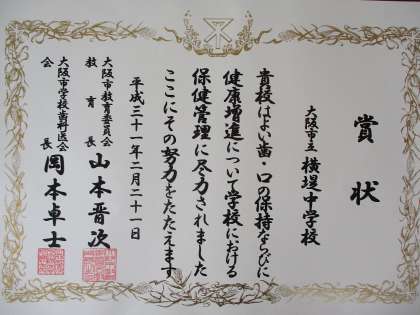 賞状
大阪市立 横堤中学校
貴校はよい歯・口の保持ならびに
健康増進について学校における
保健管理に尽力されました
ここにその努力をたたえます
平成三十一年二月二十一日
大阪市教育委員会
教育長 山本晋次
大阪市学校歯科医会
会長 岡本卓士